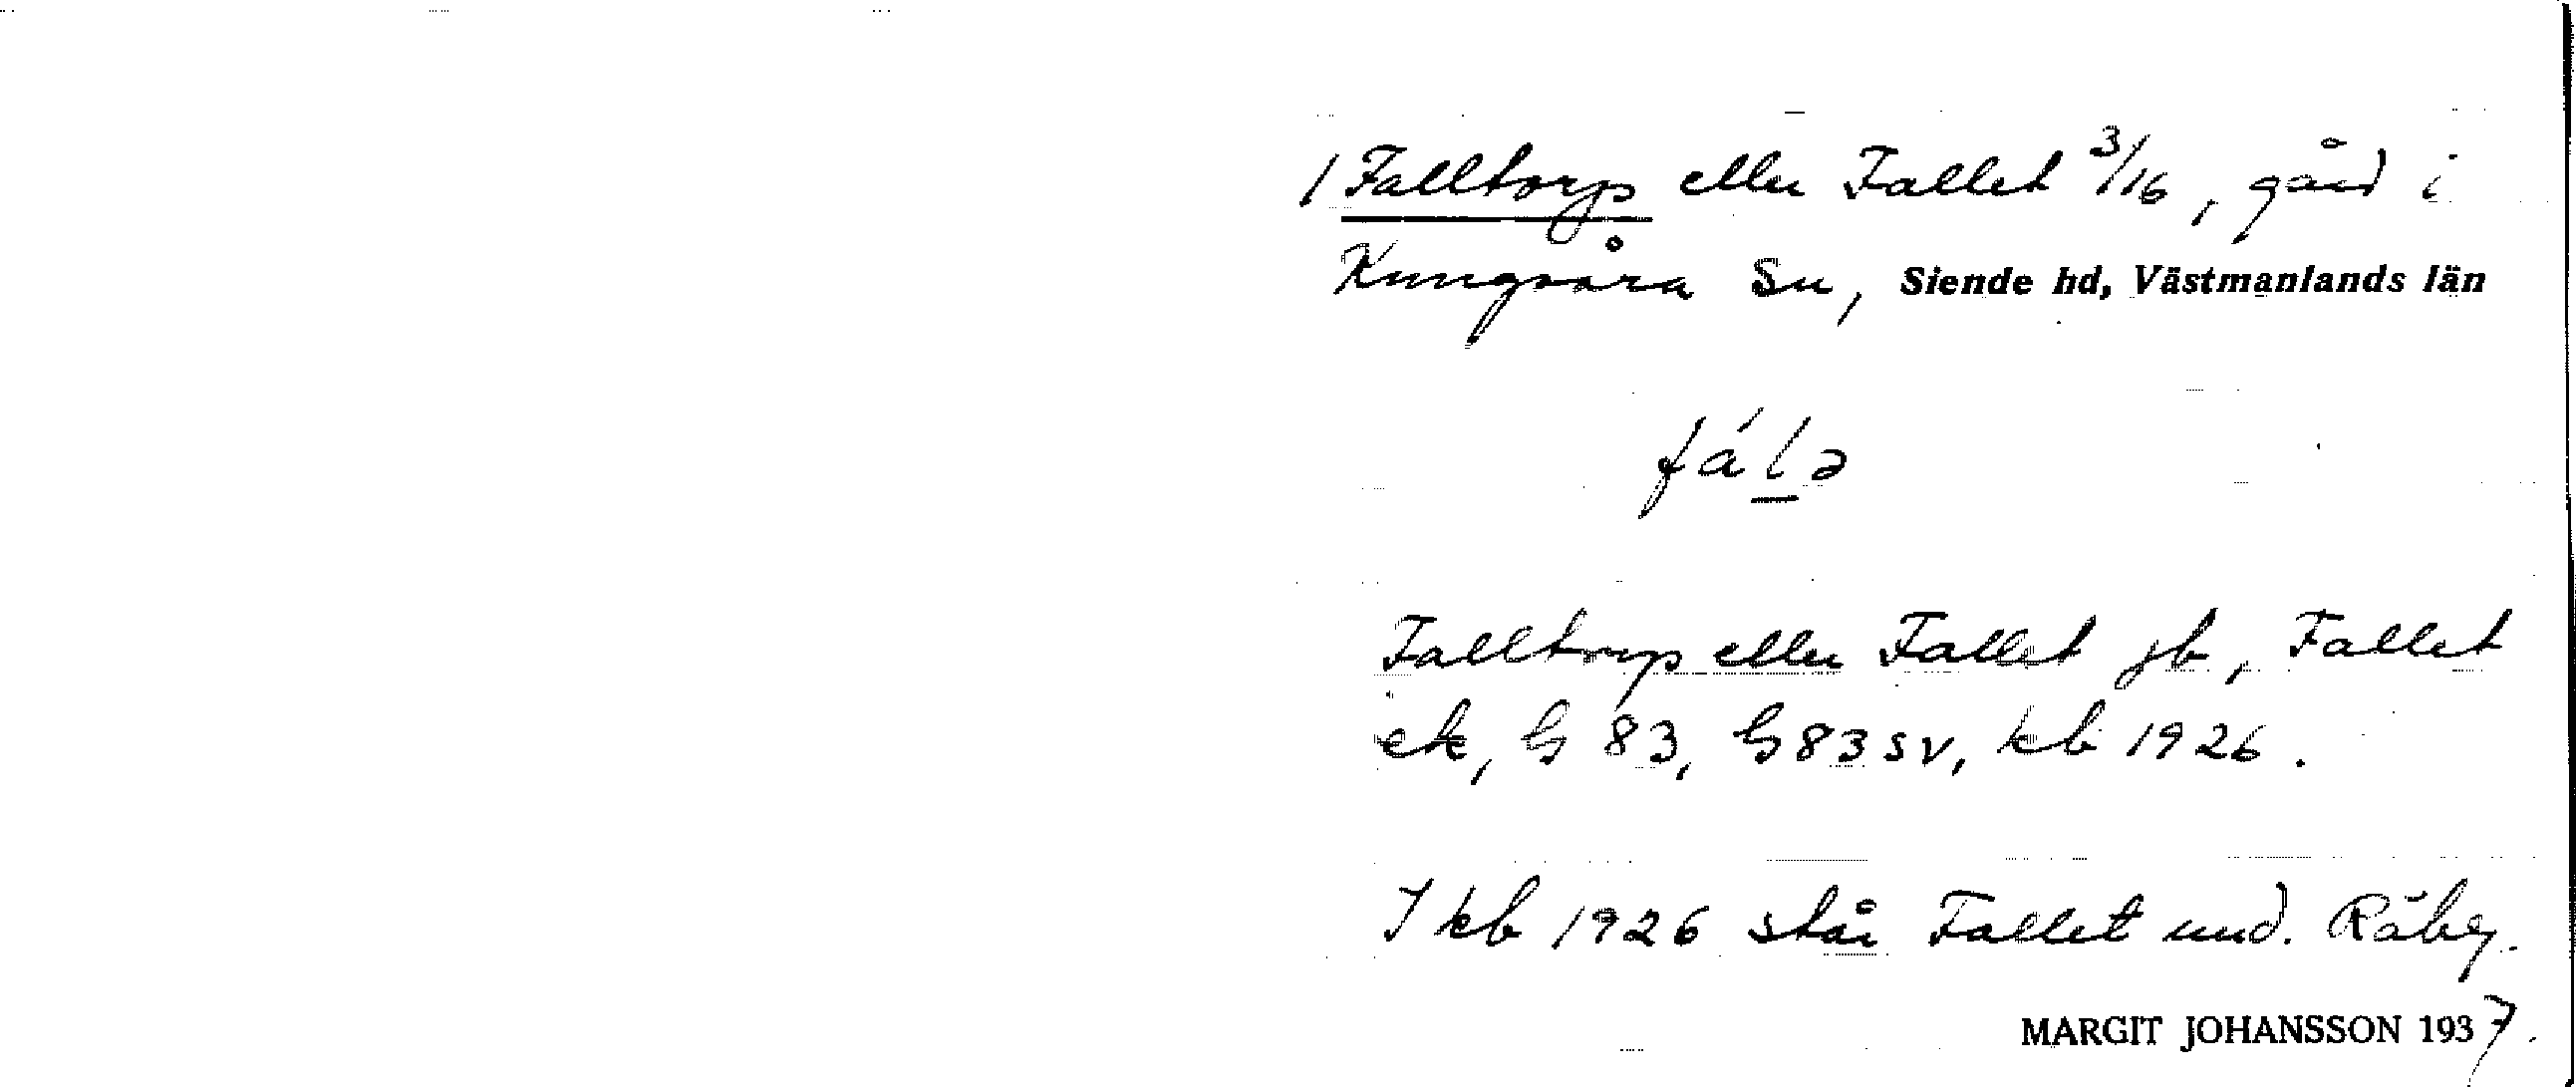 / Falltorp eller Fallet 3/16, gård i
Kungsåra sn, Siende hd, Västmanlands län
fálə
Falltorp eller Fallet jb, Fallet
ek, G 83, G 83 SV, kb 1926.
I kb 1926 står Fallet und. Råby.
MARGIT JOHANSSON 1937.